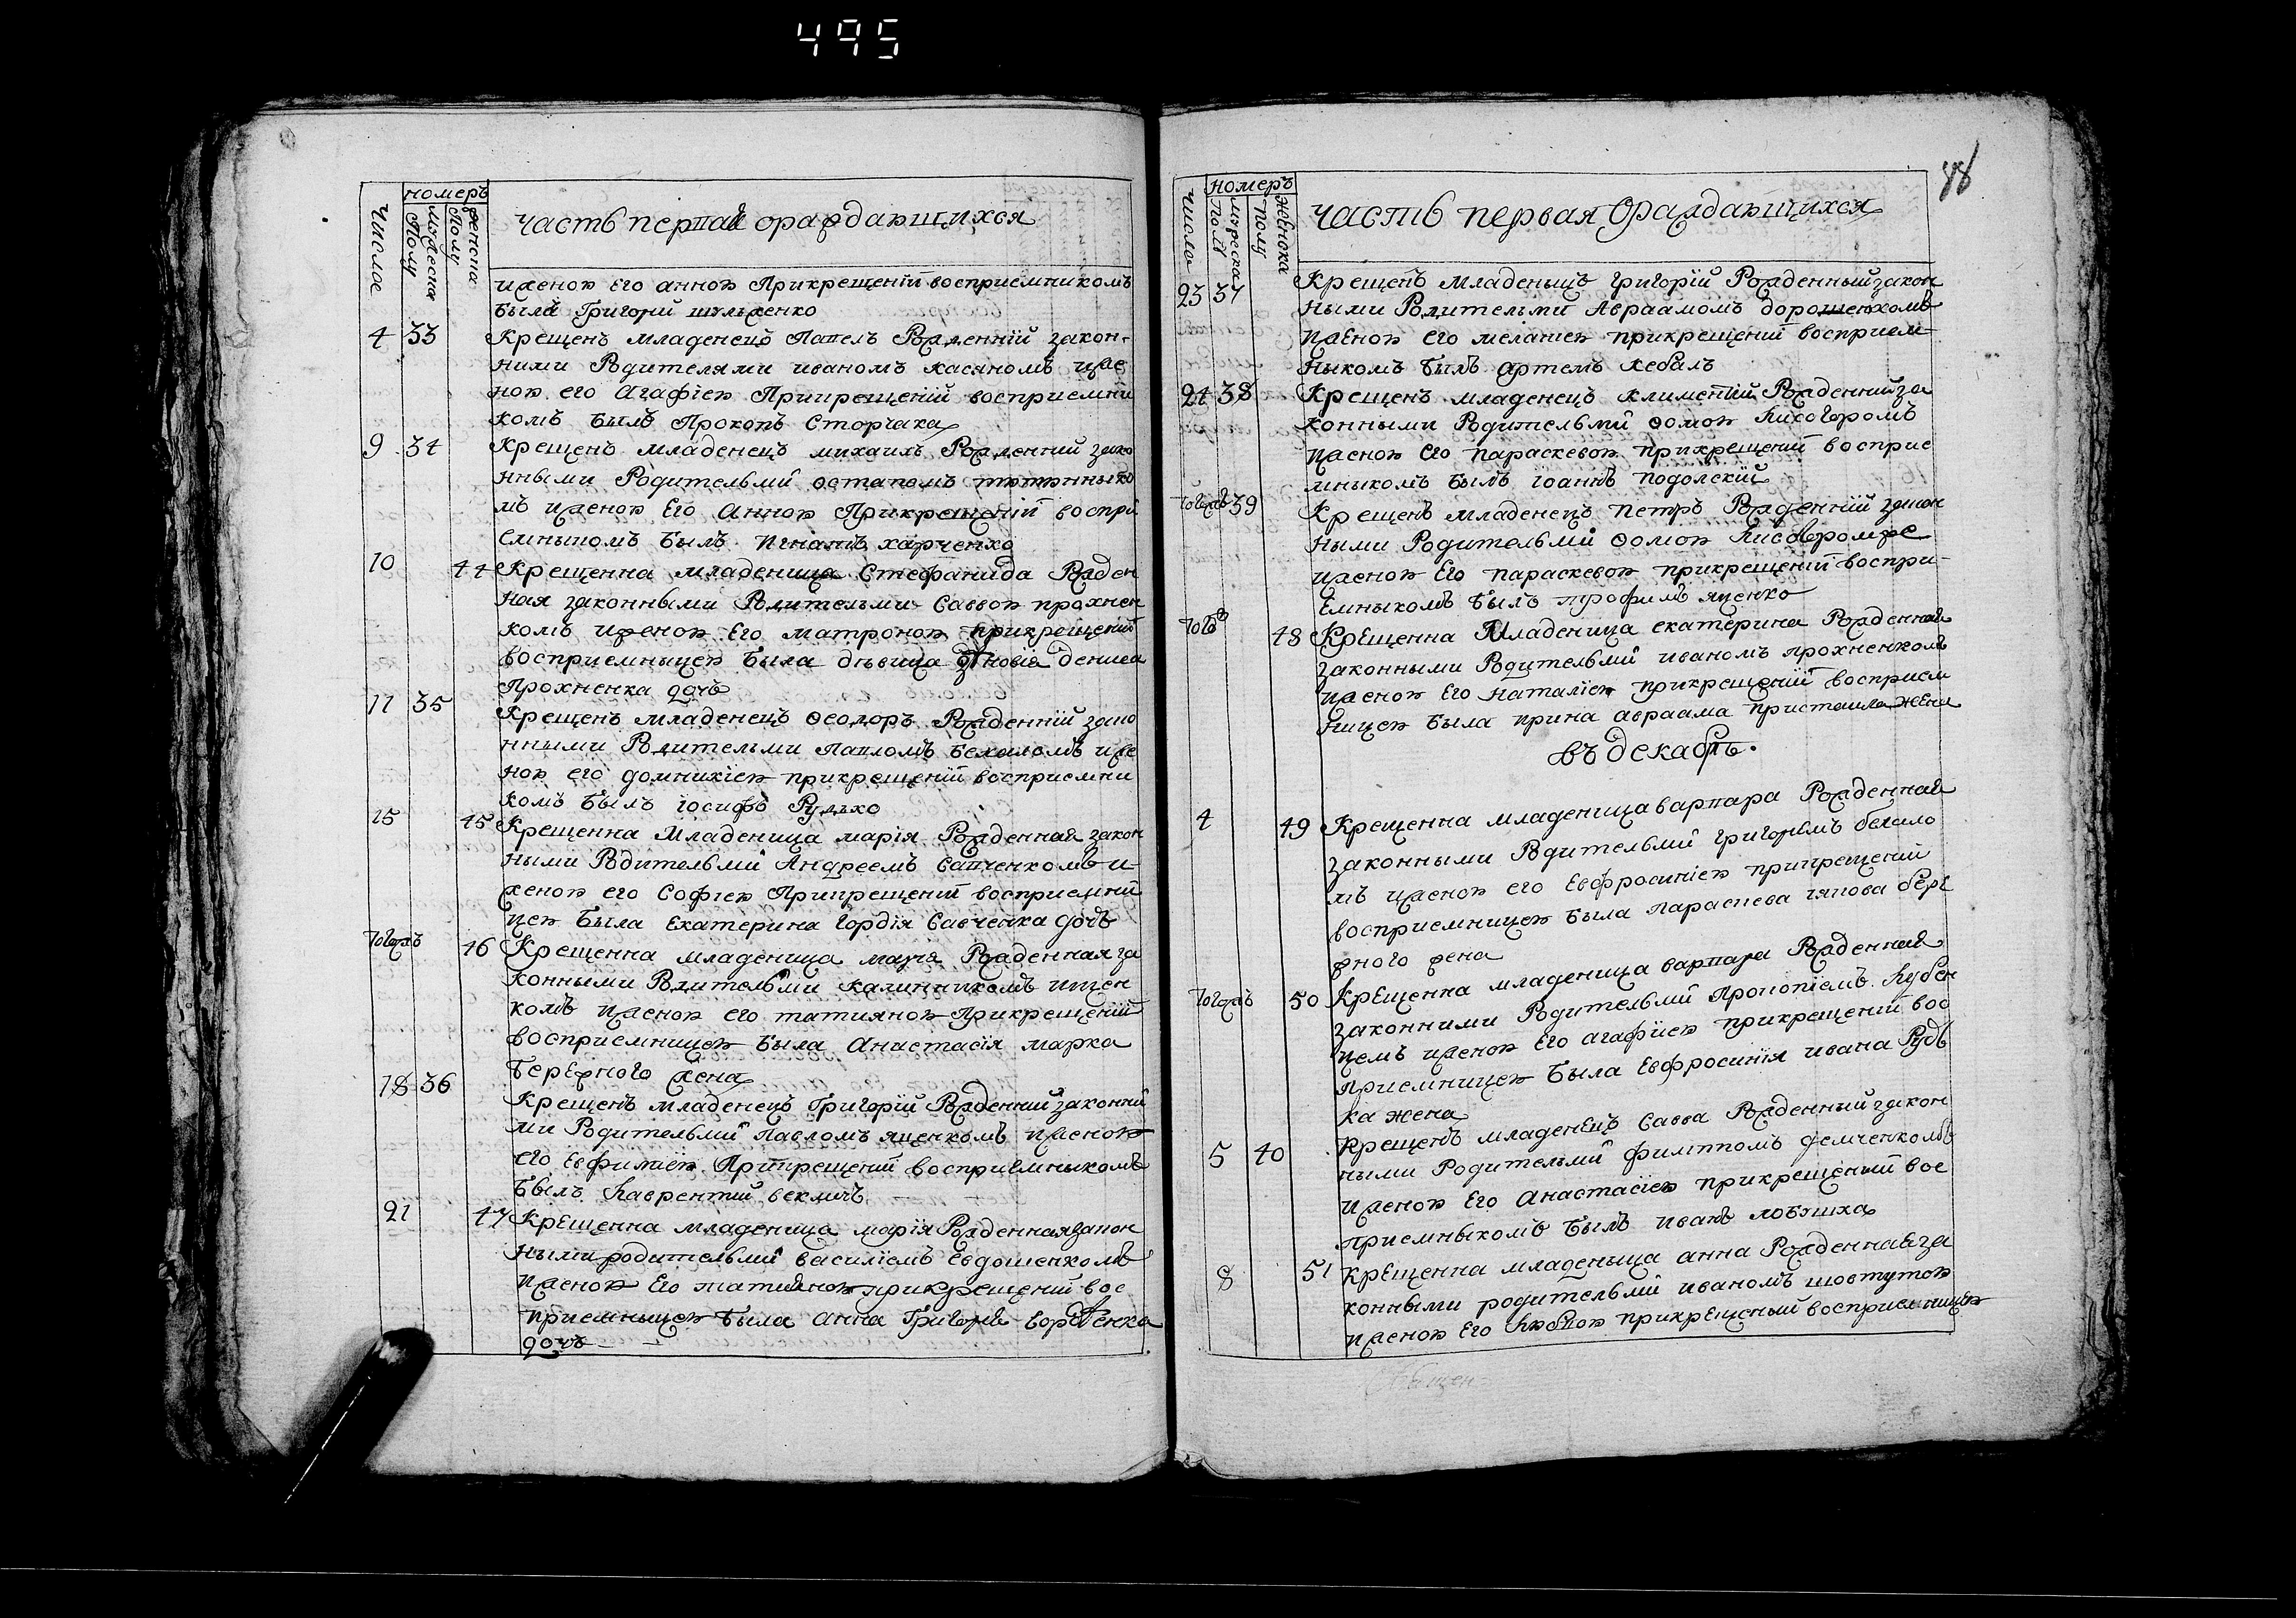 495
номеръ
Числое
мужеска Полу
женска Полу
часть первая орождающихся
иженою Его анною Прикрещеніи восприемникомъ
былъ Григорій шульженко
4 33 Крещенъ младенецъ Павелъ Рожденній закон-
ними Родителями иваномъ касяномъ иже
ною его Агафіею Прикрещеніи восприемни
комъ былъ Прокопъ Сторчака
9 34 Крещенъ младенецъ михаилъ Рожденній зако
нными Родительми остапомъ
мъ иженою Его Анною Прикрещеніи воспри
емныкомъ былъ Игнатъ харченко
10 44 Крещенна младеница Стефанида Рожден
ная законными Родительми Саввою прохнен
комъ иженою Его матроною прикрещеніи
восприемницею была дѣвица зѣновія дениса
Прохненка дочъ
11 35 Крещенъ младенецъ Ѳеодоръ Рожденній зако
нными Родительми Павломъ бекаломъ иже
ною его домникіею прикрещеніи восприемни
комъ былъ іосифъ Рудько
15 45 Крещенна младеница марія Рожденная закон
ными Родительми Андреемъ Савченкомъ и-
женою его Софіею Прикрещеніи восприемни
цею была Екатерина Гордія Савченка дочъ
тогожъ 46 Крещенна младеница марія Рожденная за
конными Родительми калинникомъ ищен
комъ иженою его татияною Прикрещеніи
восприемницею была Анастасія марка
бережного жена
18 36 Крещенъ младенецъ Григорій Рожденній законни
ми Родительми Павломъ яценкомъ иженою
его Евфиміею Прикрещеніи восприемныкомъ
былъ Лаврентій векличъ
21 47 Крещенна младеница марія Рожденная закон
ными родительми василіемъ Евдошенкомъ
иженою Его татияною прикрещеніи вос
приемницею была Анна Григорія
дочъ
48
номеръ
Числое
мужеска Полу
женска полу
часть первая Орождающихся
23 37 Крещенъ младенецъ григорій Рожденный закон
ными Родительми Авраамомъ дорошенкомъ
иженою его меланіею прикрещеніи восприем-
ныкомъ былъ артемъ кебалъ
24 38 Крещенъ младенецъ климентій Рожденній за
конными Родительми Ѳомою Лисогоромъ
иженою Его параскевою прикрещеніи восприе
мныкомъ былъ іоаннъ подолскій
тогожъ 39 Крещенъ младенецъ петръ Рожденній закон
ными Родительми Ѳомою
иженою Его параскевою прикрещеніи воспри-
емныкомъ былъ трофимъ яценко
тогожъ 48 Крещенна младеница екатерина Рожденная
законными Родительми иваномъ прохненкомъ
иженою Его наталіею прикрещеніи восприем
ницею была ирина авраама жена
въ декабрѣ.
4 49 Крещенна младеница варвара Рожденная
законными Родительми григоріемъ бекало
мъ иженою его Евфросиніею прикрещеніи
восприемницею была Параскева якова бере
жного жена
тогожъ 50 Крещенна младеница варвара Рожденная
законними Родительми Прокопіемъ кубен
цемъ иженою Его агафіею прикрещеніи вос
приемницею была Евфросинія ивана Рудь
ка жена
5 40 Крещенъ младенецъ Савва Рожденный закон
ными Родительми филиппомъ демченкомъ
иженою Его Анастасіею прикрещеніи вос
приемныкомъ былъ иванъ
8 51 Крещенна младеныца анна Рожденная за
конными родительми иваномъ шовтутою
иженою Его Любвою прикрещеныи восприемницею